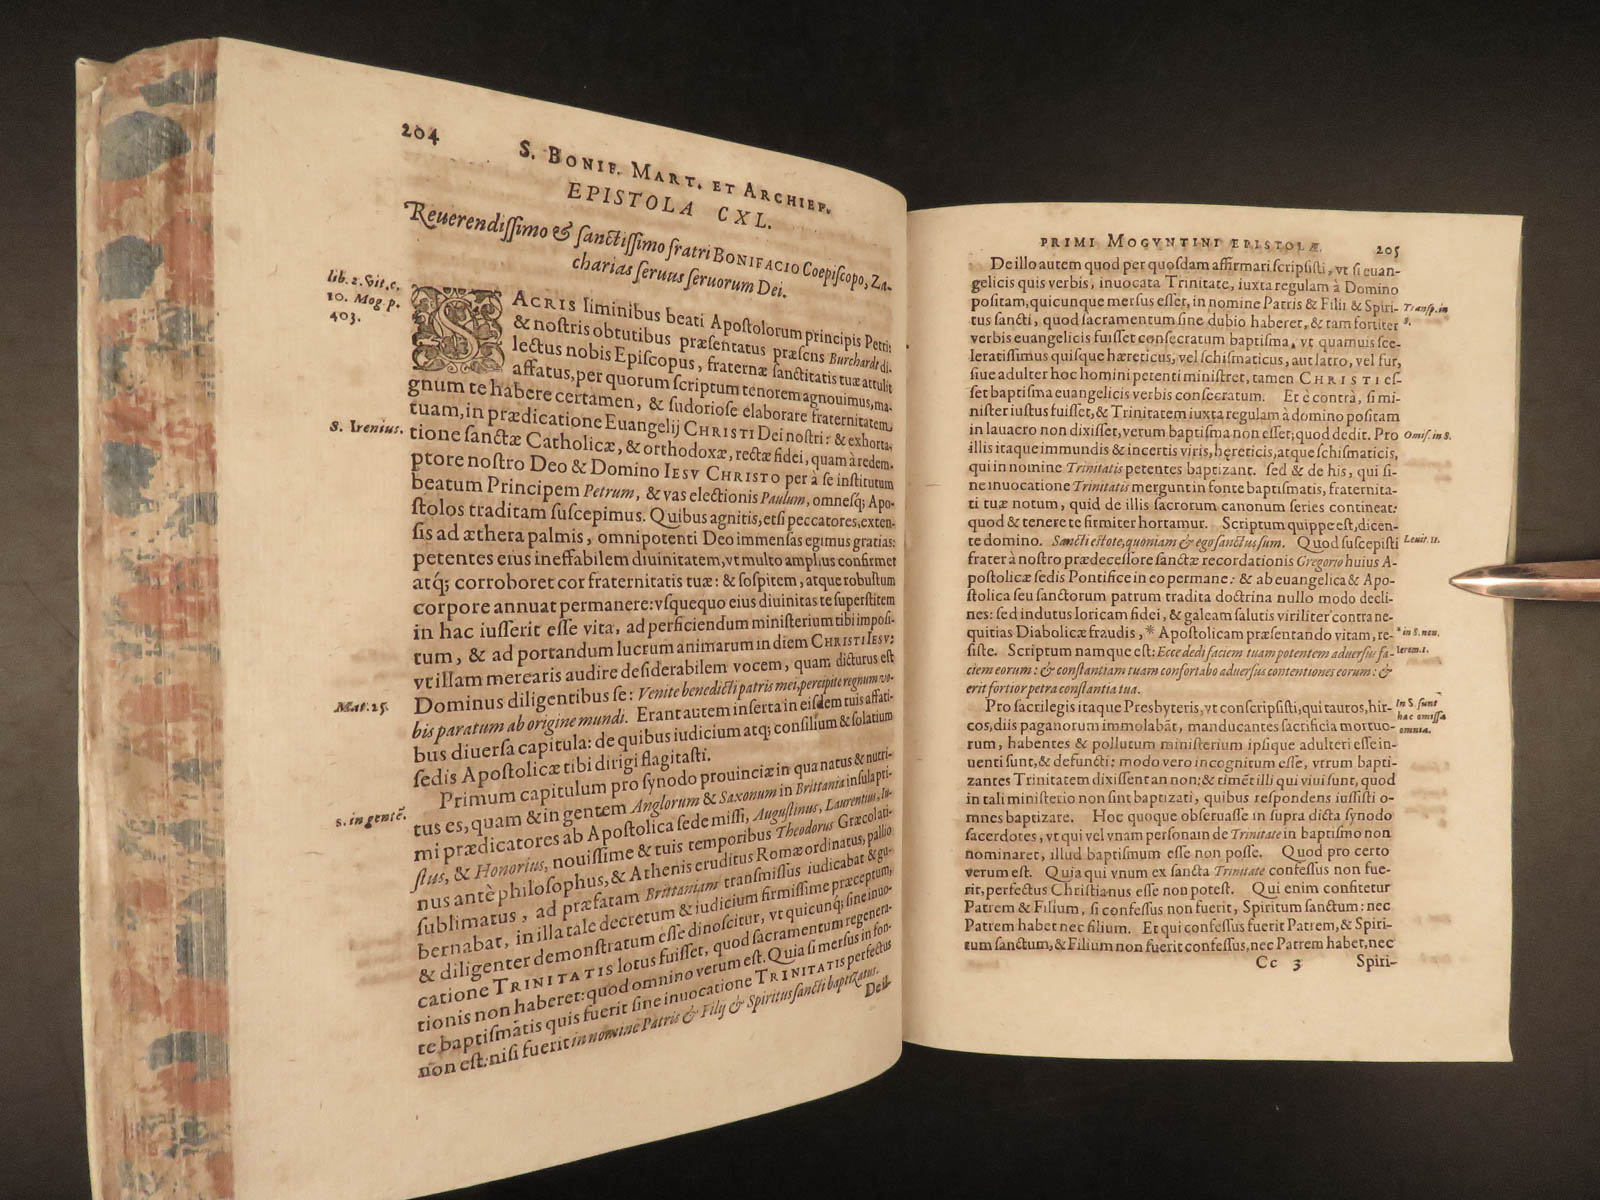 204
S. BONIF. MART. ET ARCHIEP.
EPISTOLA CXL.
Reuerendiſſimo & ſanctiſſimo fratri BONIFACIO Coepiſcopo, Za-
charias ſeruus ſeruorum Dei.
lib. 2. Vit. c.
10. Mog. p.
403.
SACRIS liminibus beati Apoſtolorum principis Petri:
& noſtris obtutibus præſentatus præſens Burchardt di-
lectus nobis Epiſcopus, fraternæ ſanctitatis tuæ attulit
affatus, per quorum ſcriptum tenorem agnouimus, ma-
gnum te habere certamen, & ſudorioſe elaborare fraternitatem
tuam, in prædicatione Euangelij CHRISTI Dei noſtri: & exhorta-
S. Irenius.
tione ſanctæ Catholicæ, & orthodoxæ, rectæ fidei, quam à redem-
ptore noſtro Deo & Domino IESV CHRISTO per à ſe inſtitutum
beatum Principem Petrum, & vas electionis Paulum, omneſq; Apo-
ſtolos traditam ſuſcepimus. Quibus agnitis, etſi peccatores, exten-
ſis ad æthera palmis, omnipotenti Deo immenſas egimus gratias:
petentes eius ineffabilem diuinitatem, vt multo amplius confirmet
atq; corroboret cor fraternitatis tuæ: & ſoſpitem, atque robuſtum
corpore annuat permanere: vſquequo eius diuinitas te ſuperſtitem
in hac iuſſerit eſſe vita, ad perficiendum miniſterium tibi impoſi-
tum, & ad portandum lucrum animarum in diem CHRISTI IESV:
vt illam merearis audire deſiderabilem vocem, quam dicturus eſt
Mat. 25.
Dominus diligentibus ſe: Venite benedicti patris mei, percipite regnum vo-
bis paratum ab origine mundi. Erant autem inſerta in eiſdem tuis affati-
bus diuerſa capitula: de quibus iudicium atq; conſilium & ſolatium
ſedis Apoſtolicæ tibi dirigi flagitaſti.
Primum capitulum pro ſynodo prouinciæ in qua natus & nutri-
s. in gentē.
tus es, quam & in gentem Anglorum & Saxonum in Brittania inſula pri-
mi prædicatores ab Apoſtolica ſede miſſi, Auguſtinus, Laurentius, Iu-
ſtus, & Honorius, nouiſſime & tuis temporibus Theodorus Græco lati-
nus antè philoſophus, & Athenis eruditus Romæ ordinatus, pallio
ſublimatus, ad præfatam Brittaniam tranſmiſſus iudicabat & gu-
bernabat, in illa tale decretum & iudicium firmiſſime præceptum,
& diligenter demonſtratum eſſe dinoſcitur, vt quicunq; ſine inuo-
catione TRINITATIS lotus fuiſſet, quod ſacramentum regenera-
tionis non haberet: quod omnino verum eſt. Quia ſi merſus in fon-
te baptiſmàtis quis fuerit ſine inuocatione TRINITATIS perfectus
non eſt: niſi fuerit in nomine Patris & Filij & Spiritus ſancti baptizatus.
De il-
PRIMI MOGVNTINI EPISTOLÆ.
205
De illo autem quod per quoſdam affirmari ſcripſiſti, vt ſi euan-
gelicis quis verbis, inuocata Trinitate, iuxta regulam à Domino
poſitam, quicunque merſus eſſet, in nomine Patris & Filii & Spiri-
Tranſp. in
S.
tus ſancti, quod ſacramentum ſine dubio haberet, & tam fortiter
verbis euangelicis fuiſſet conſecratum baptiſma, vt quamuis ſce-
leratiſſimus quiſque hæreticus, vel ſchiſmaticus, aut latro, vel fur,
ſiue adulter hoc homini petenti miniſtret, tamen CHRISTI eſ-
ſet baptiſma euangelicis verbis conſecratum. Et è contrà, ſi mi-
niſter iuſtus fuiſſet, & Trinitatem iuxta regulam à domino poſitam
in lauacro non dixiſſet, verum baptiſma non eſſet; quod dedit. Pro
Omiſ. in S.
illis itaque immundis & incertis viris, hęreticis, atque ſchiſmaticis,
qui in nomine Trinitatis petentes baptizant. ſed & de his, qui ſi-
ne inuocatione Trinitatis mergunt in fonte baptiſmatis, fraternita-
ti tuæ notum, quid de illis ſacrorum canonum ſeries contineat:
quod & tenere te firmiter hortamur. Scriptum quippe eſt, dicen-
te domino. Sancti eſtote, quoniam & ego ſanctus ſum. Quod ſuſcepiſti
Leuit. 11.
frater à noſtro prædeceſſore ſanctæ recordationis Gregorio huius A-
poſtolicæ ſedis Pontifice in eo permane: & ab euangelica & Apo-
ſtolica ſeu ſanctorum patrum tradita doctrina nullo modo decli-
nes: ſed indutus loricam fidei, & galeam ſalutis viriliter contra ne-
quitias Diabolicæ fraudis, * Apoſtolicam præſentando vitam, re-
* in S. non.
ſiſte. Scriptum namque eſt: Ecce dedi faciem tuam potentem aduerſus fa-
Ierem. 1.
ciem eorum: & conſtantiam tuam confortabo aduerſus contentiones eorum: &
erit fortior petra conſtantia tua.
Pro ſacrilegis itaque Presbyteris, vt conſcripſiſti, qui tauros, hir-
In S. ſunt
hæc omiſſa
omnia.
cos, diis paganorum immolabāt, manducantes ſacrificia mortuo-
rum, habentes & pollutum miniſterium ipſique adulteri eſſe in-
uenti ſunt, & defuncti: modo vero incognitum eſſe, vtrum bapti-
zantes Trinitatem dixiſſent an non: & timēt illi qui viui ſunt, quod
in tali miniſterio non ſint baptizati, quibus reſpondens iuſſiſti o-
mnes baptizare. Hoc quoque obſeruaſſe in ſupra dicta ſynodo
ſacerdotes, vt qui vel vnam perſonam de Trinitate in baptiſmo non
nominaret, illud baptiſmum eſſe non poſſe. Quod pro certo
verum eſt. Quia qui vnum ex ſancta Trinitate confeſſus non fue-
rit, perfectus Chriſtianus eſſe non poteſt. Qui enim confitetur
Patrem & Filium, ſi confeſſus non fuerit, Spiritum ſanctum: nec
Patrem habet nec filium. Et qui confeſſus fuerit Patrem, & Spiri-
tum ſanctum, & Filium non fuerit confeſſus, nec Patrem habet, nec
Cc 3
Spiri-